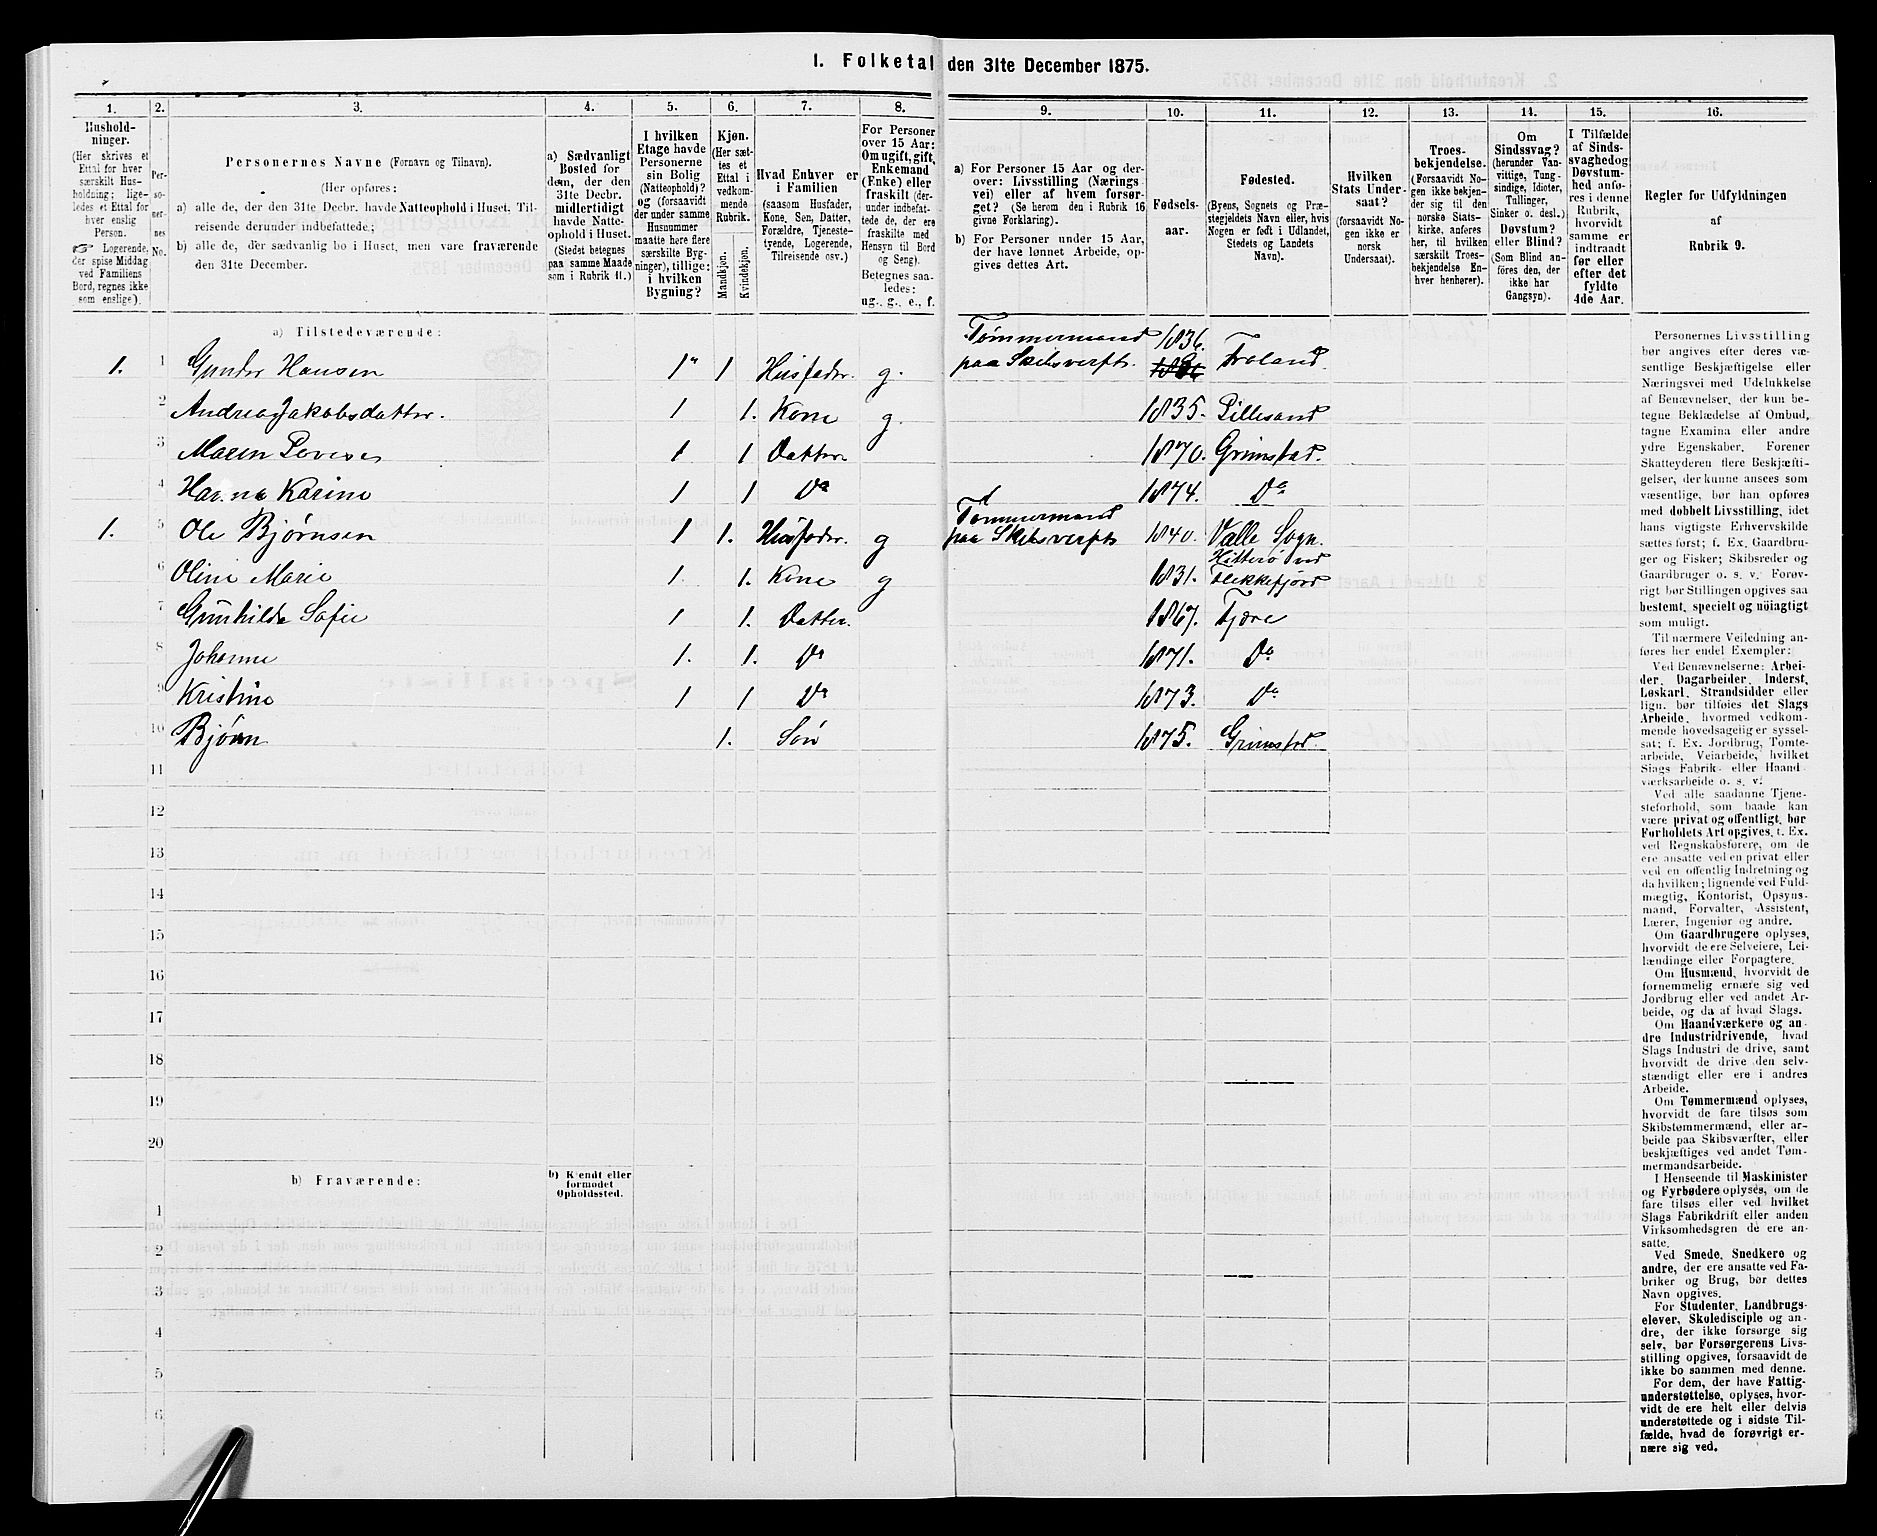 1. Folketal den 31te December 1875.
1. 2. 3. 4. 5. 6. 7. 8. 9. 10. 11. 12. 13. 14. 15. 16.
Hushold-
ninger.
(Her skrives et
Ettal for hver
særskilt Hus-
holdning; lige-
ledes et Ettal for
hver enslig
Person.
☞ Logerende,
der spise Middag
ved Familiens
Bord, regnes ikke
som enslige).
Per-
so-
ner-
nes
No.
Personernes Navne (Fornavn og Tilnavn).
(Her opføres:
a) alle de, der den 31te Decbr. havde Natteophold i Huset, Til-
reisende derunder indbefattede;
b) alle de, der sædvanlig bo i Huset, men vare fraværende
den 31te December.
a) Sædvanligt
Bosted for
dem, der den
31te Decbr.
midlertidigt
havde Natte-
ophold i Huset.
(Stedet betegnes
paa samme Maade
som i Rubrik 11.)
I hvilken
Etage havde
Personerne
sin Bolig
(Natteophold)?
og (forsaavidt
der under samme
Husnummer
maatte høre flere
særskilte Byg-
ninger), tillige:
i hvilken
Bygning?
Kjøn.
(Her sæt-
tes et
Ettal i
vedkom-
mende
Rubrik.
Mandkjøn.
Kvindekjøn.
Hvad Enhver er
i Familien
(saasom Husfader,
Kone, Søn, Datter,
Forældre, Tjeneste-
tyende, Logerende,
Tilreisende osv.)
For Personer
over 15 Aar:
Om ugift, gift,
Enkemand
(Enke) eller
fraskilt (der-
under indbefat-
tede de, der ere
fraskilte med
Hensyn til Bord
og Seng).
Betegnes saa-
ledes:
ug., g., e., f.
a) For Personer 15 Aar og der-
over: Livsstilling (Nærings
vei) eller af hvem forsør-
get? (Se herom den i Rubrik 16
givne Forklaring).
b) For Personer under 15 Aar,
der have lønnet Arbeide, op-
gives dettes Art.
Fødsels-
aar.
Fødested.
(Byens, Sognets og Præ-
stegjeldets Navn eller, hvis
Nogen er født i Udlandet,
Stedets og Landets
Navn).
Hvilken
Stats Under-
saat?
(forsaavidt No-
gen ikke er
norsk
Undersaat).
Troes-
bekjendelse.
(Forsaavidt No-
gen ikke bekjen-
der sig til den
norske Stats-
kirke, anføres
her, til hvilken
særskilt Troes-
bekjendelse En-
hver henhører).
Om
Sindssvag?
(herunder Van-
vittige, Tung-
sindige, Idioter,
Tullinger,
Sinker o. desl.)
Døvstum?
eller Blind?
(Som Blind an-
føres den, der
ikke har
Gangsyn).
I Tilfælde
af Sinds-
svaghed og
Døvstum-
hed anfø-
res i denne
Rubrik,
hvorvidt
samme er
indtraadt
før eller
efter det
fyldte
4de Aar.
Regler for Udfyldningen
af
Rubrik 9.
a) Tilstedeværende:
1. 1 Gunder Hansen 1 1 Husfader. g. Tømmermand paa Skibsverft. 1836. Froland.
2 Andrea Jakobsdatter. 1 1. Kone g. 1835. Lillesand
3 Maren Lovise 1 1 Datter 1870. Grimstad.
4 Hanna Karine 1 1 Do 1874. Do
1. 5 Ole Bjørnsen 1 1. Husfader. g Tømmermand paa Skibsverft 1840. Valle Sogn.
6 Oline Marie 1. 1. Kone g 1831. Hitterø ved Flekkefjord
7 Gunhilde Sofie 1 1. Datter. 1867. Fjære
8 Johanne 1. 1. Do 1871. Do
9 Kristine 1 1 Do 1873. Do
10 Bjørn 1. Søn 1875. Grimstad.
11
12
13
14
15
16
17
18
19
20
b) Fraværende:
b) Kjendt eller
formodet
Opholdssted.
1
2
3
4
5
6
Personernes Livsstilling
bør angives efter deres væ-
sentlige Beskjæftigelse eller
Næringsvei med Udelukkelse
af Benævnelser, der kun be-
tegne Beklædelse af Ombud,
tagne Examina eller andre
ydre Egenskaber. Forener
Skatteyderen flere Beskjæfti-
gelser, der kunne ansees som
væsentlige, bør han opføres
med dobbelt Livsstilling, idet
hans vigtigste Erhvervskilde
sættes først; f. Ex. Gaardbru-
ger og Fisker; Skibsreder og
Gaardbruger o. s. v. Forøv-
rigt bør Stillingen opgives saa
bestemt, specielt og nøiagtigt
som muligt.
Til nærmere Veiledning an-
føres her endel Exempler:
Ved Benævnelserne: Arbei-
der, Dagarbeider, Inderst,
Løskarl, Strandsidder eller
lign. bør tilføies det Slags
Arbeide, hvormed vedkom-
mende hovedsagelig er syssel-
sat; f. Ex. Jordbrug, Tomte-
arbeide, Veiarbeide, hvilket
Slags Fabrik- eller Haand
værksarbeide o. s. v.
Ved alle saadanne Tjene-
steforhold, som baade kan
være privat og offentligt, bør
Forholdets Art opgives, f. Ex.
ved Regnskabsførere, om de
ere ansatte ved en privat eller
ved en offentlig Indretning og
da hvilken; lignende ved Fuld-
mægtig, Kontorist, Opsyns-
mand, Forvalter, Assistent,
Lærer, Ingeniør og andre.
Om Gaardbrugere oplyses,
hvorvidt de ere Selveiere, Lei-
lændinge eller Forpagtere.
Om Husmænd, hvorvidt de
fornemmelig ernære sig ved
Jordbrug eller ved andet Ar-
beide, og da af hvad Slags.
Om Haandværkere og an
dre Industridrivende, hvad
Slags Industri de drive, samt
hvorvidt de drive den selv-
stændigt eller ere i andres
Arbeide.
Om Tømmermænd oplyses,
hvorvidt de fare tilsøs som
Skibstømmermænd, eller ar-
beide paa Skibsværfter, eller
beskjæftiges ved andet Tøm-
mermandsarbeide.
I Henseende til Maskinister
og Fyrbødere oplyses, om de
fare tilsøs eller ved hvilket
Slags Fabrikdrift eller anden
Virksomhedsgren de ere an-
satte.
Ved Smede, Snedkere og
andre, der ere ansatte ved Fa-
briker og Brug, bør dettes
Navn opgives.
For Studenter, Landbrugs-
elever, Skoledisciple og an-
dre, der ikke forsørge sig
selv, bør Forsørgerens Livs-
stilling opgives, forsaavidt de
ikke bo sammen med denne.
For dem, der have Fattig-
understøttelse, oplyses, hvor-
vidt de ere helt eller delvis
understøttede og i sidste Til-
fælde, hvad de forøvrigt er-
nære sig ved.